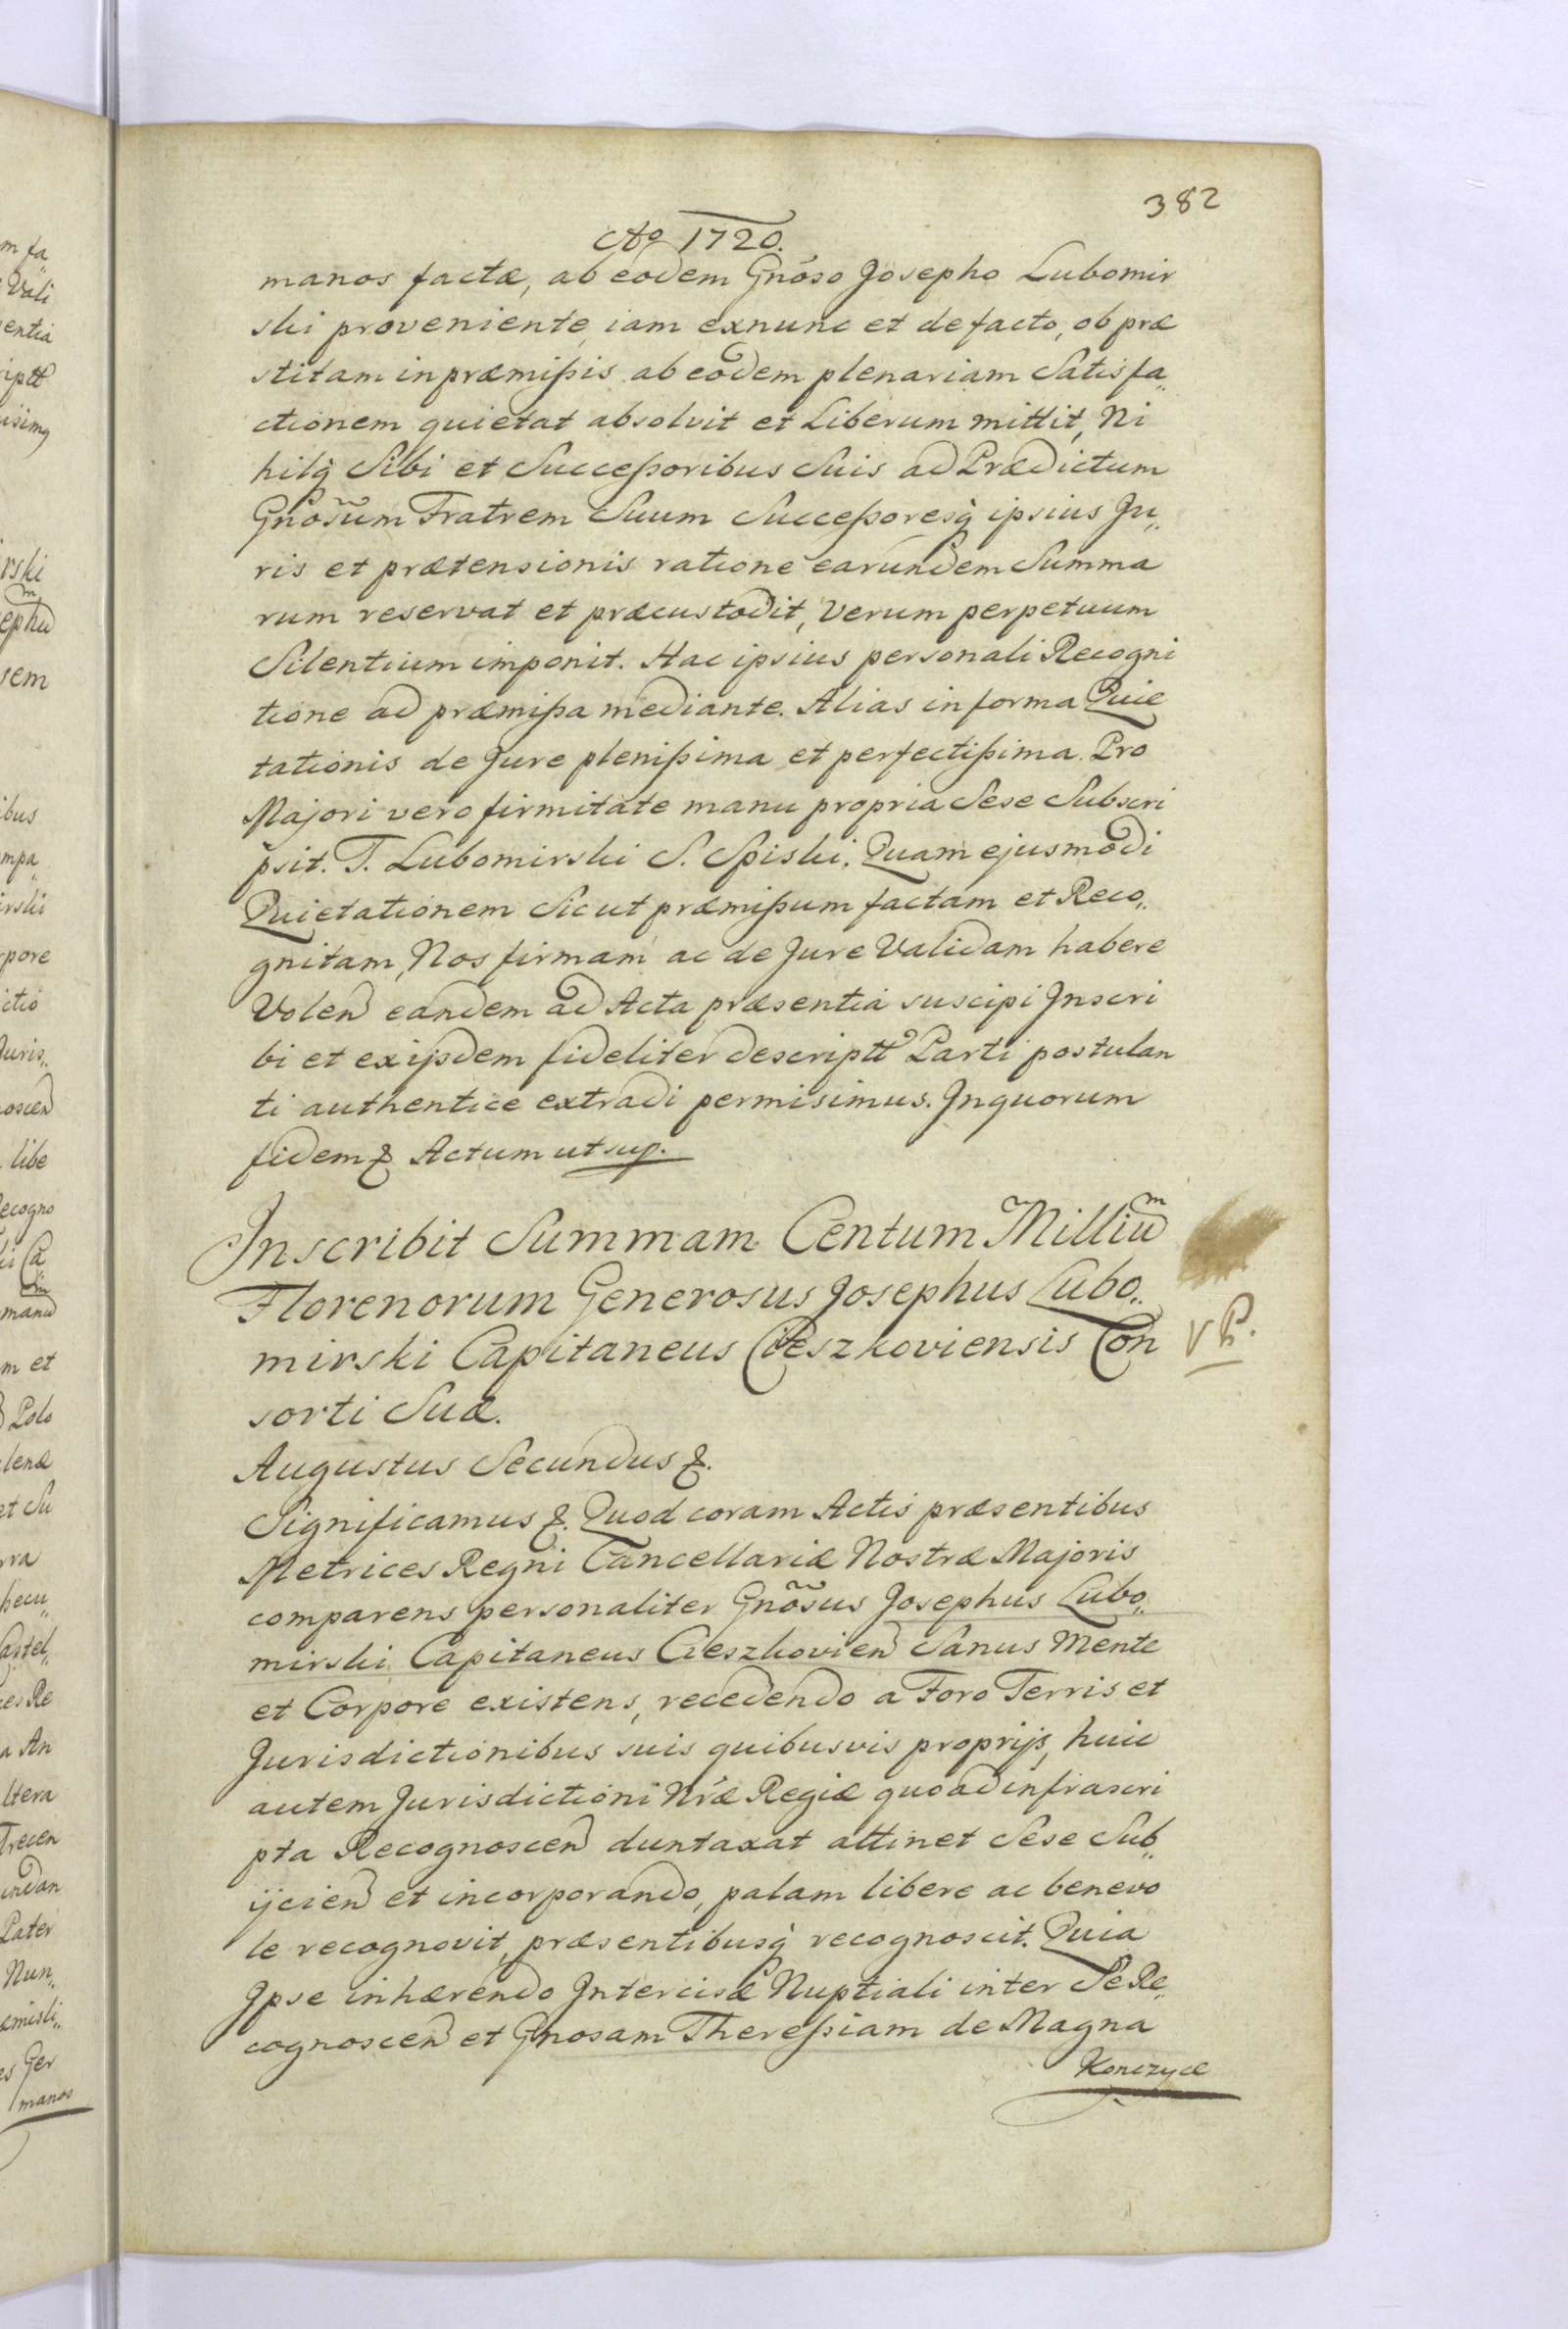 382
Ao 1720.
manos factæ, ab eodem Gnõso Josepho Lubomir
ski proveniente, iam exnunc et de facto, ob præ
stitam in præmißis ab eodem plenariam Satisfa„
ctionem quietat absolvit et Liberum mittit, Ni
hilq̀ Sibi et Succeßoribus Suis ad Prædictum
Gnõsum Fratrem Suum Succeßoresq̀ ipsius Ju„
ris et prætensionis ratione earundem Summa
rum reservat et præcustodit, Verum perpetuum
Silentium imponit. Hac ipsius personali Recogni
tione ad præmißa mediante. Alias in forma Quie
tationis de Jure plenißima et perfectißima. Pro
Majori vero firmitate manu propria Sese Subscri
psit. T. Lubomirski S. Spiski. Quam ejusmodi
Quietationem Sicut præmißum factam et Reco„
gnitam, Nos firmam ac de Jure Validam habere
Volen̄ eandem ad Acta præsentia suscipi Inscri
bi et ex ijsdem fideliter descriptt Parti postulan
ti authentice extradi permisimus. In quorum
fidem &. Actum ut sup.
Inscribit Summam Centum Milliũm
Florenorum Generosus Josephus Lubo„
mirski Capitaneus Cieszkoviensis Con
sorti Suæ.
Augustus Secundus &.
Significamus &. Quod coram Actis præsentibus
Metrices Regni Cancellariæ Nostræ Majoris
comparens personaliter Gnõsus Josephus Lubo„
mirski Capitaneus Cieszkovien̄ Sanus Mente
et Corpore existens, recedendo a Foro Terris et
Jurisdictionibus suis quibusvis proprijs, huic
autem Jurisdictioni Nræ Regiæ quo ad infrascri
pta Recognoscen̄ duntaxat attinet Sese Sub„
ijcien̄ et incorporando, palam libere ac benevo
le recognovit, præsentibusq̀ recognoscit. Quia
Ipse inhærendo Intercisæ Nuptiali inter Se Re„
cognoscen̄ et Gnosam Thereßiam de Magna
Konczyce